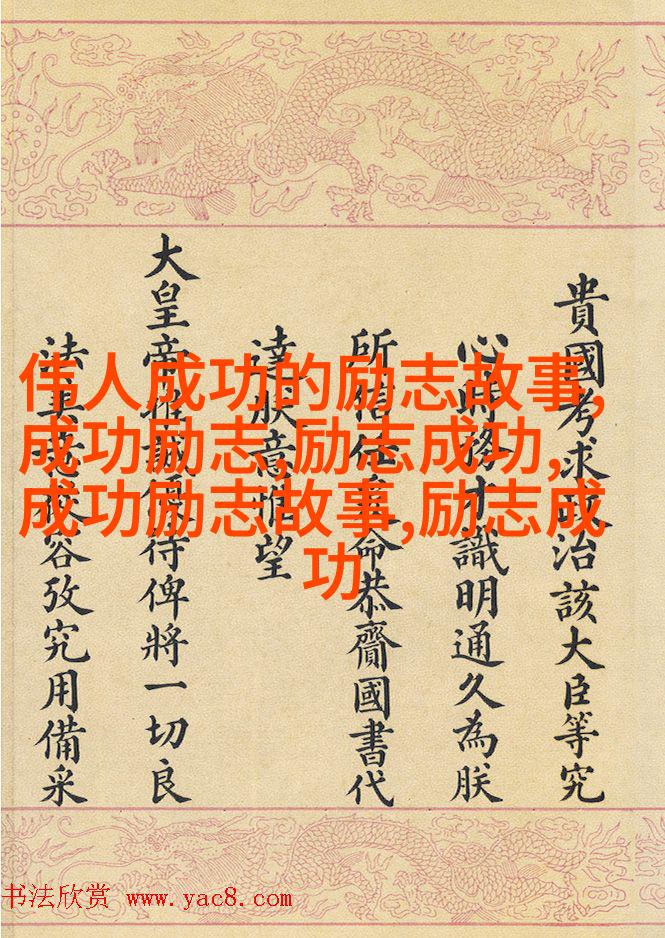 伟人成功的励志故事,
成功励志,励志成功,
成功励志故事,励志成
功
貴國考求政治該大臣等究
心時務才識明通久為朕
所信任命恭齎國書代
達朕意惟望
大皇帝推誠優待俾將一切良
法容攷究用備采
书法欣赏 www.yac8.com